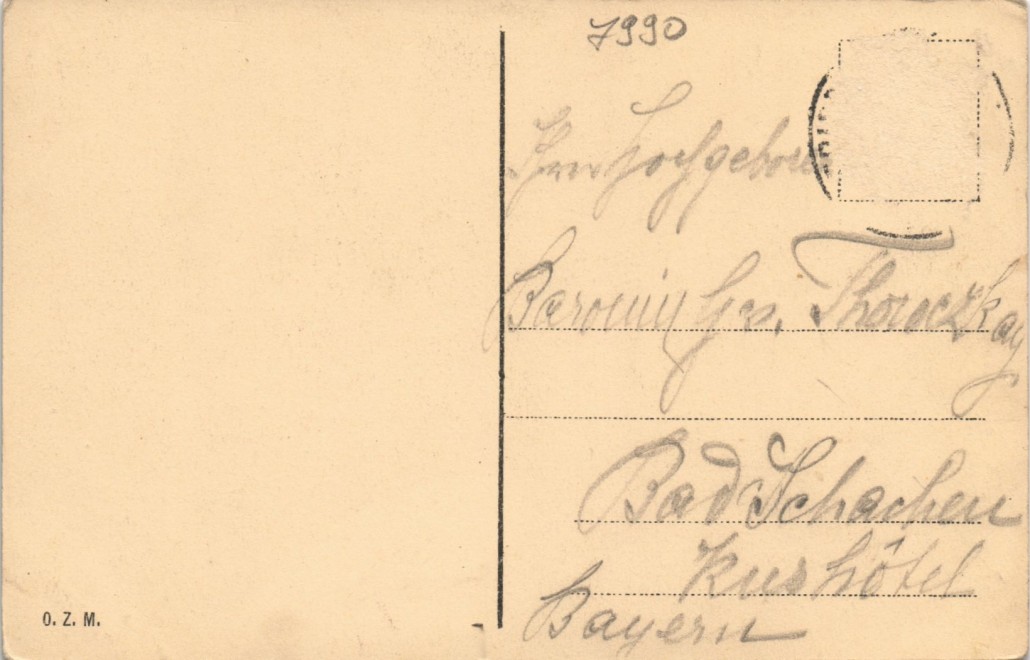 7990
Hochgeboren
Baronin Thoroczkay
Bad Schachen
Kurhôtel
Bayern
O. Z. M.